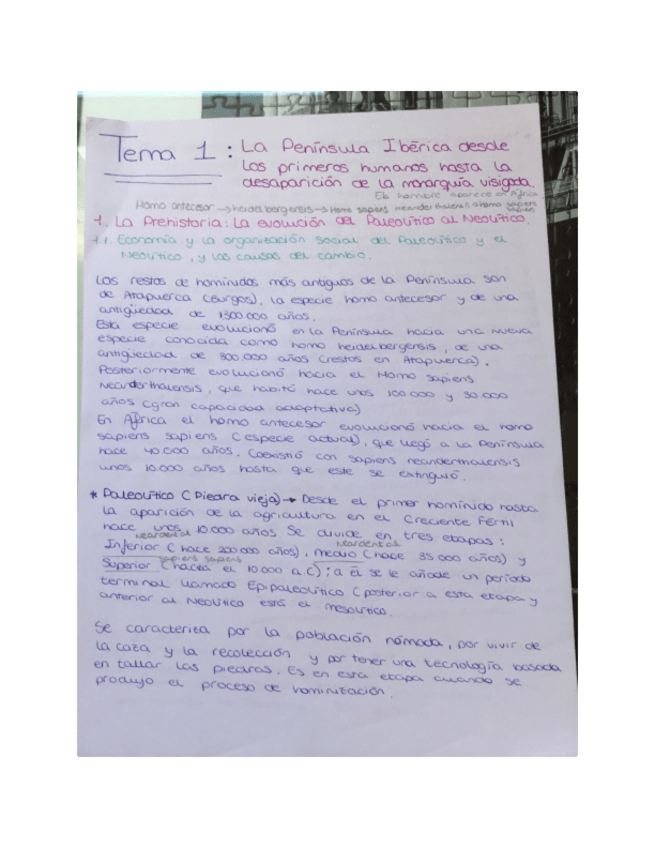 Tema 1: La Península Ibérica desde
los primeros humanos hasta la
desaparición de la monarquía visigoda.
El hombre aparece en África
Homo antecesor → heidelbergensis → Homo sapiens neanderthalensis → homo sapiens
sapiens
1. La Prehistoria: La evolución del Paleolítico al Neolítico.
1.1. Economía y la organización social del Paleolítico y el
Neolítico, y las causas del cambio.
Los restos de homínidos más antiguos de la Península son
de Atapuerca (Burgos), la especie homo antecesor y de una
antigüedad de 1300 000 años.
Esta especie evolucionó en la Península hacia una nueva
especie conocida como homo heidelbergensis, de una
antigüedad de 300.000 años (restos en Atapuerca).
Posteriormente evolucionó hacia el Homo sapiens
neanderthalensis, que habitó hace unos 100 000 y 30.000
años (gran capacidad adaptativa)
En África el homo antecesor evolucionó hacia el homo
sapiens sapiens (especie actual), que llegó a la Península
hace 40 000 años. Coexistió con sapiens neanderthalensis
unos 10.000 años hasta que este se extinguió.
* Paleolítico (Piedra vieja) → Desde el primer homínido hasta
la aparición de la agricultura en el Creciente Fértil
hace unos 10 000 años se divide en tres etapas:
Neardental Neardental
Inferior (hace 200 000 años), medio (hace 35 000 años) y
sapiens sapiens
Superior (hacia el 10 000 a.C); a él se le añade un período
terminal llamado Epipaleolítico (posterior a esta etapa y
anterior al Neolítico está el mesolítico.
Se caracteriza por la población nómada, por vivir de
la caza y la recolección, y por tener una tecnología basada
en tallar las piedras. Es en esta etapa cuando se
produjo el proceso de hominización.